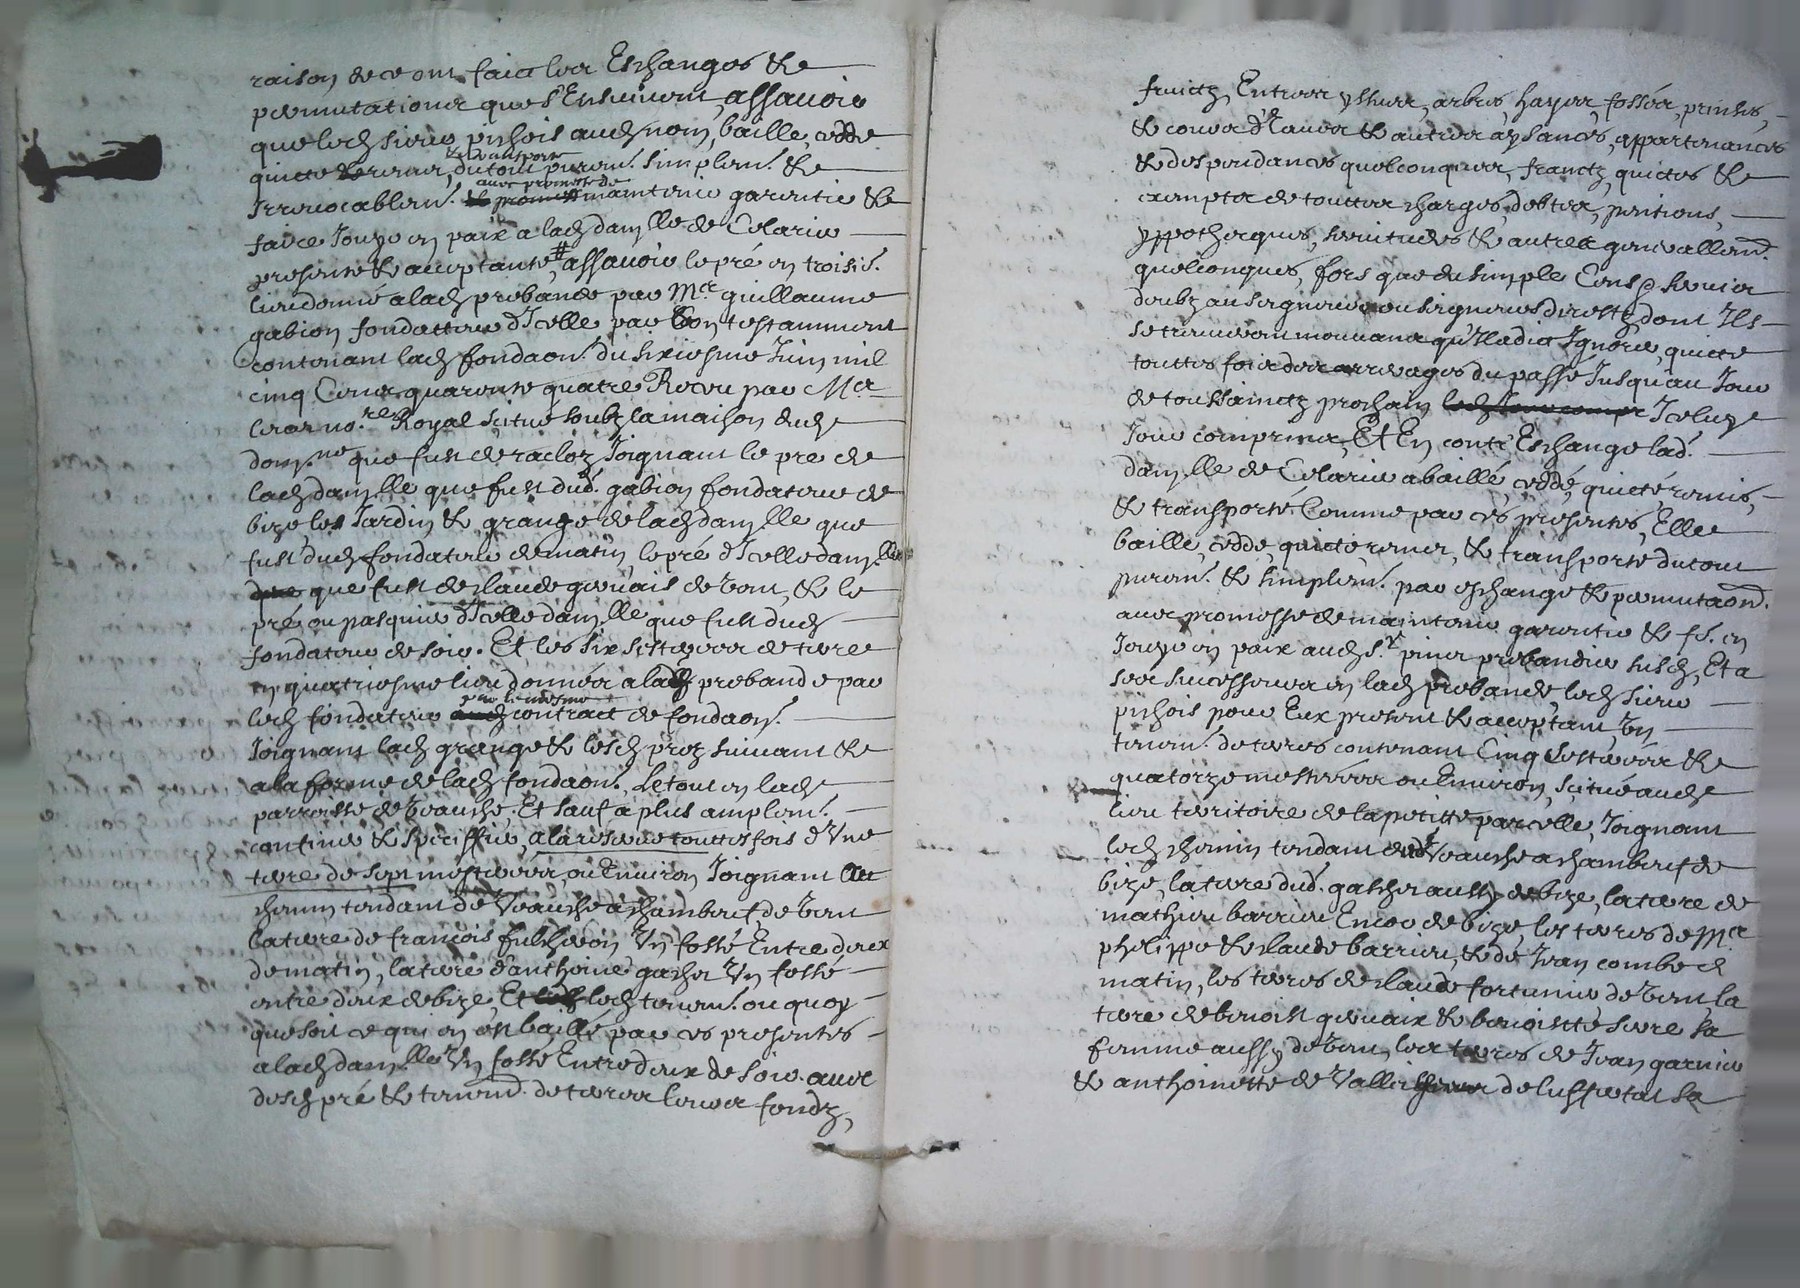 raison de ce ont faict les Eschanges &
permutations que s'Ensuivent, assavoir
que led sieur pichois aud nom, baille, cedde
quicte remet, & transporte du tout purem.t simplem.t &
Irrevocablem.t avec promesse de maintenir garentir &
faire Jouyr en paix a lad dam.lle de Colarie
presente & acceptante, # assavoir le pré en troisis.
lieu donné a lad prebande par M.re guillaume
gabion fondatteur d'Icelle par son testamment
contenant lad fondaon. du sixiesme Juin mil
cinq Cens quarente quatre Receu par M.re
no.re Royal scitué soubz la maison dud
que fust de racloz, Joignant le pre de
lad dam.lle que fust dud. gabion fondateur de
bize les Jardin & grange de lad dam.lle que
fust dud fondateur de matin, le pré d'Icelle dam.lle
que fust de claude gervais de vent, & le
pré ou pasquier d'Icelle dam.lle que fust dud
fondateur de soir. Et les six sesteyrer de terre
en quatriesme lieu donnéer a lad prebande par
led fondateur par le mesme contract de fondaon.
Joignant lad grange & lesd prez suivant &
a la forme de lad fondaon., Le tout en lad
parroisse de veauche. Et sauf a plus amplem.t
confiner & speciffier, a la reserve touttesfois d'Une
terre de sept mesteyrer, ou Environ Joignant au
chemin tendant de Veauche a chambeuf de vent
la terre de francois Un fossé Entre deux
de matin, la terre d'anthoine gascher Un fossé
entre deux de bize, Et led tenem.t ou quoy
que soit ce qui en est baillé par ces presentes
a lad dam.lle Un fossé Entre deux de soir. avec
desd pré & tenem.t de terrer leurer fondz,
fruictz, Entreer yssuer, arbres hayer, fosséer, prinses,
& cours d'Eauer & autrer aysances, appartenances
& despendances quelconquer, franctz, quictes &
exemptes de toutter charges, debter, pentions,
yppothecques, servitudes & autres generallem.t
quelconques, fors que du simple Cens & servis
doubz au seigneur ou seigneurs directz, dont Ils
se treuveront mouvans qu'Il a dict Ignorer, quicte
touttes fois des arreirages du passé Jusqu'au Jour
de toussainctz prochain Iceluy
Jour comprins, Et En contr'Eschange lad.
dam.lle de Colarie a baillé, ceddé, quicté remis,
& transporté Comme par ces presentes, Elle
baille, cedde, quicte remet, & transporte du tout
purem.t & simplem.t par eschange & permutaon.
avec promesse de maintenir garentir & f.e en
Jouyr en paix aud s.r prebandier susd, Et a
ses successeurs en lad prebande, led sieur
pichois pour Eux present & acceptant Un
tenem.t de terres contenant Cinq Sesteyrér &
quatorze mesteyrér ou Environ, scitué aud
lieu territoire de la petitte parcelle, Joignant
led chemin tendant dud Veauche a chambeuf de
bize, la terre dud. gascher aussy de bize, la terre de
mathieu barrieu Encor de bize, les terres de M.re
philippe & claude barrieu, & de Jean combe d
matin, les terres de claude fortunier de vent, la
terre de benoist gervaix & benoistte serre sa
femme aussy de vent, les terres de Jean garnier
& anthoinette de Vallie de sa